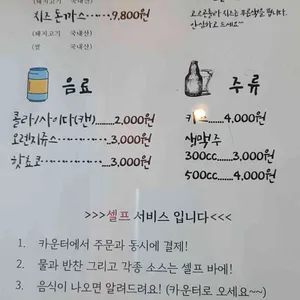 (돼지고기 국내산)
치즈돈까스·······9,800원
(돼지고기 국내산)
(쌀 국내산)
안심하고 드세요~
음료
콜라/사이다(캔)........2,000원
오렌지쥬스...........3,000원
핫초코................3,000원
주류
4,000원
생맥주
300cc........3,000원
500cc........4,000원
>>>셀프 서비스 입니다<<<
1. 카운터에서 주문과 동시에 결제!
2. 물과 반찬 그리고 각종 소스는 셀프 바에!
3. 음식이 나오면 알려드려요! (카운터로 오세요~~)